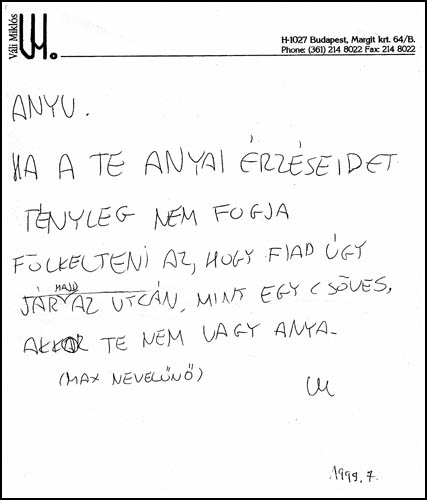 Váli Miklós
VM.
H-1027 Budapest, Margit krt. 64/B.
Phone: (361) 214 8022 Fax: 214 8022
ANYU.
HA A TE ANYAI ÉRZÉSEIDET
TÉNYLEG NEM FOGJA
FÖLKELTENI AZ, HOGY FIAD ÚGY
JÁR MAJD AZ UTCÁN, MINT EGY CSÖVES,
AKKOR TE NEM VAGY ANYA.
(MAX NEVELŐNŐ)
M
1999. 7.